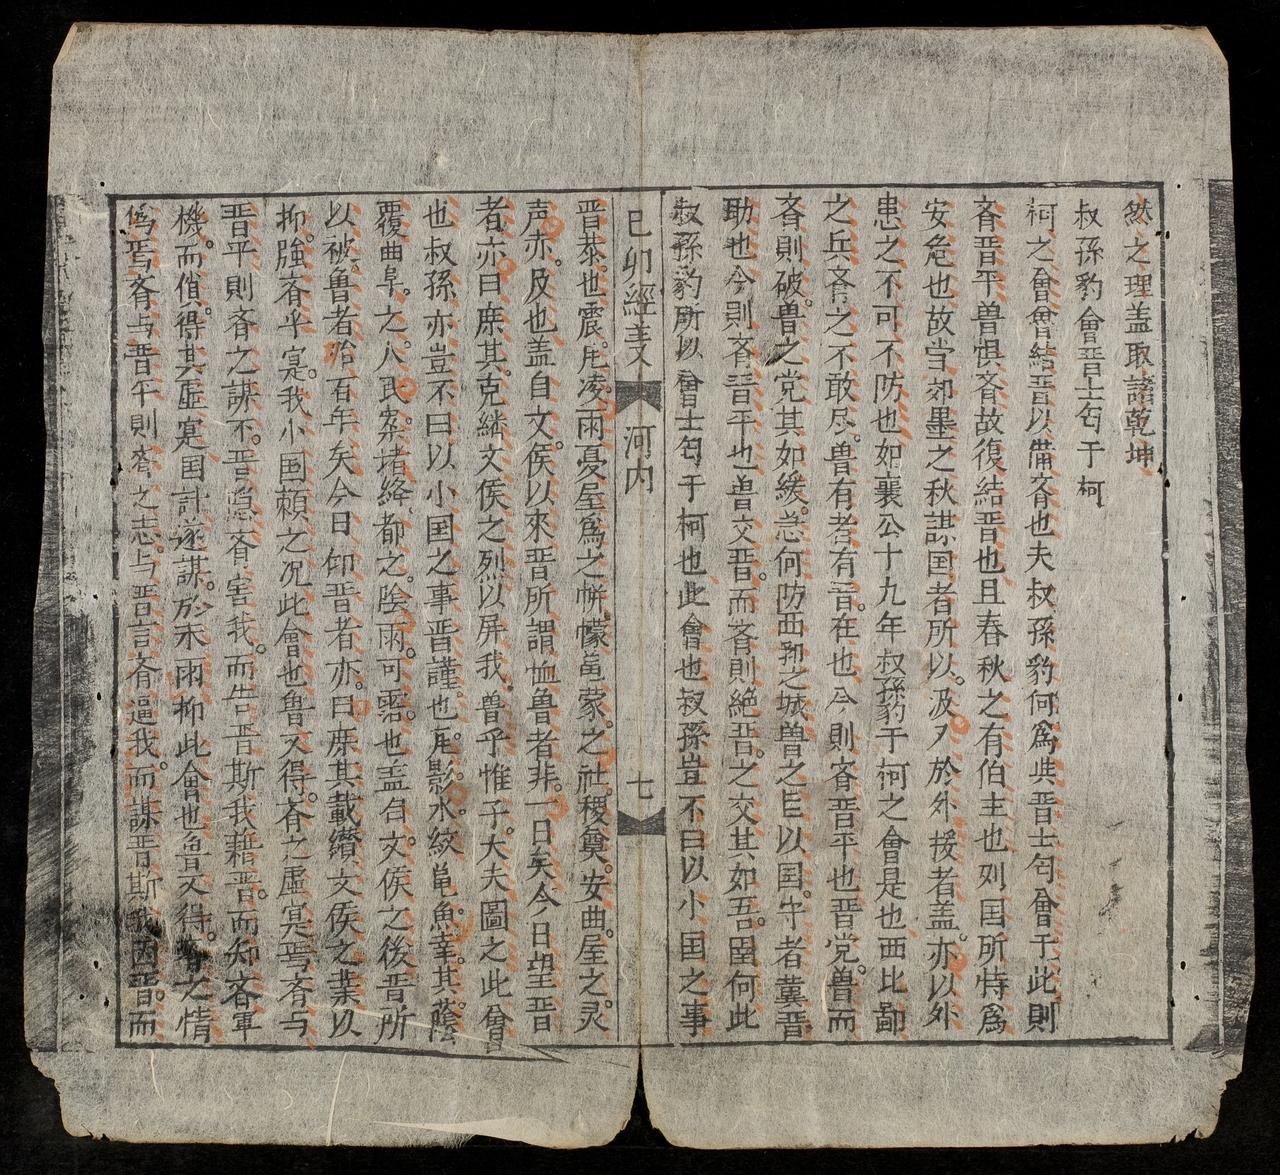 然之理盖取諸乾坤
叔孫豹會晋士匄于柯
柯之會魯結晋以備斉也夫叔孫豹何為与晋士匄會于此則
斉晋平魯惧斉故復結晋也且春秋之有伯主也列国所恃為
安危也故当郊墨之秋謀国者所以。汲〻於外援者盖。亦以外
患之不可不防也如襄公十九年叔孫豹于柯之會是也西比鄙
之兵斉之不敢尽。魯有者有晋。在也今則斉晋平也晋党。魯而
斉則破。魯之党其如緩。急何防西郛之城魯之臣以国。守者冀晋
助也今則斉晋平也魯交晋。而斉則絶晋。之交其如吾。圉何此
叔孫豹所以會士匄于柯也此會也叔孫豈不曰以小国之事
己卯經義 河内 七
晋恭。也震。凡凌雨憂屋為之帡幪亀蒙。之社。稷奠。安曲。屋之灵
声。亦。及也盖自文。侯以來晋所謂恤魯者非。一日矣今日望晋
者亦曰庶其。克継文侯之烈以屏我。魯乎惟子。大夫圖之此會
也叔孫亦豈不曰以小国之事晋謹。也凡。影。水。紋亀魚幸。其。蔭
覆曲阜。之。人民。案堵絡都之。陰雨。可。霑。也盖自文。侯之後晋所
以被。魯者殆百年矣今日仰晋者亦。曰庶其載纘文侯之業以
抑。強斉乎寔。我小国頼之况此會也魯又得。斉之虚寔焉斉与
晋平則斉之謀不。晋隠斉害我。而告晋斯我藉晋。而知斉軍
機。而偵。得其虚寔国計遂謀。於未雨抑此會也魯又得。斉之情
偽焉斉与晋平則斉之志。与晋言斉逼我。而謀晋斯我因晋。而